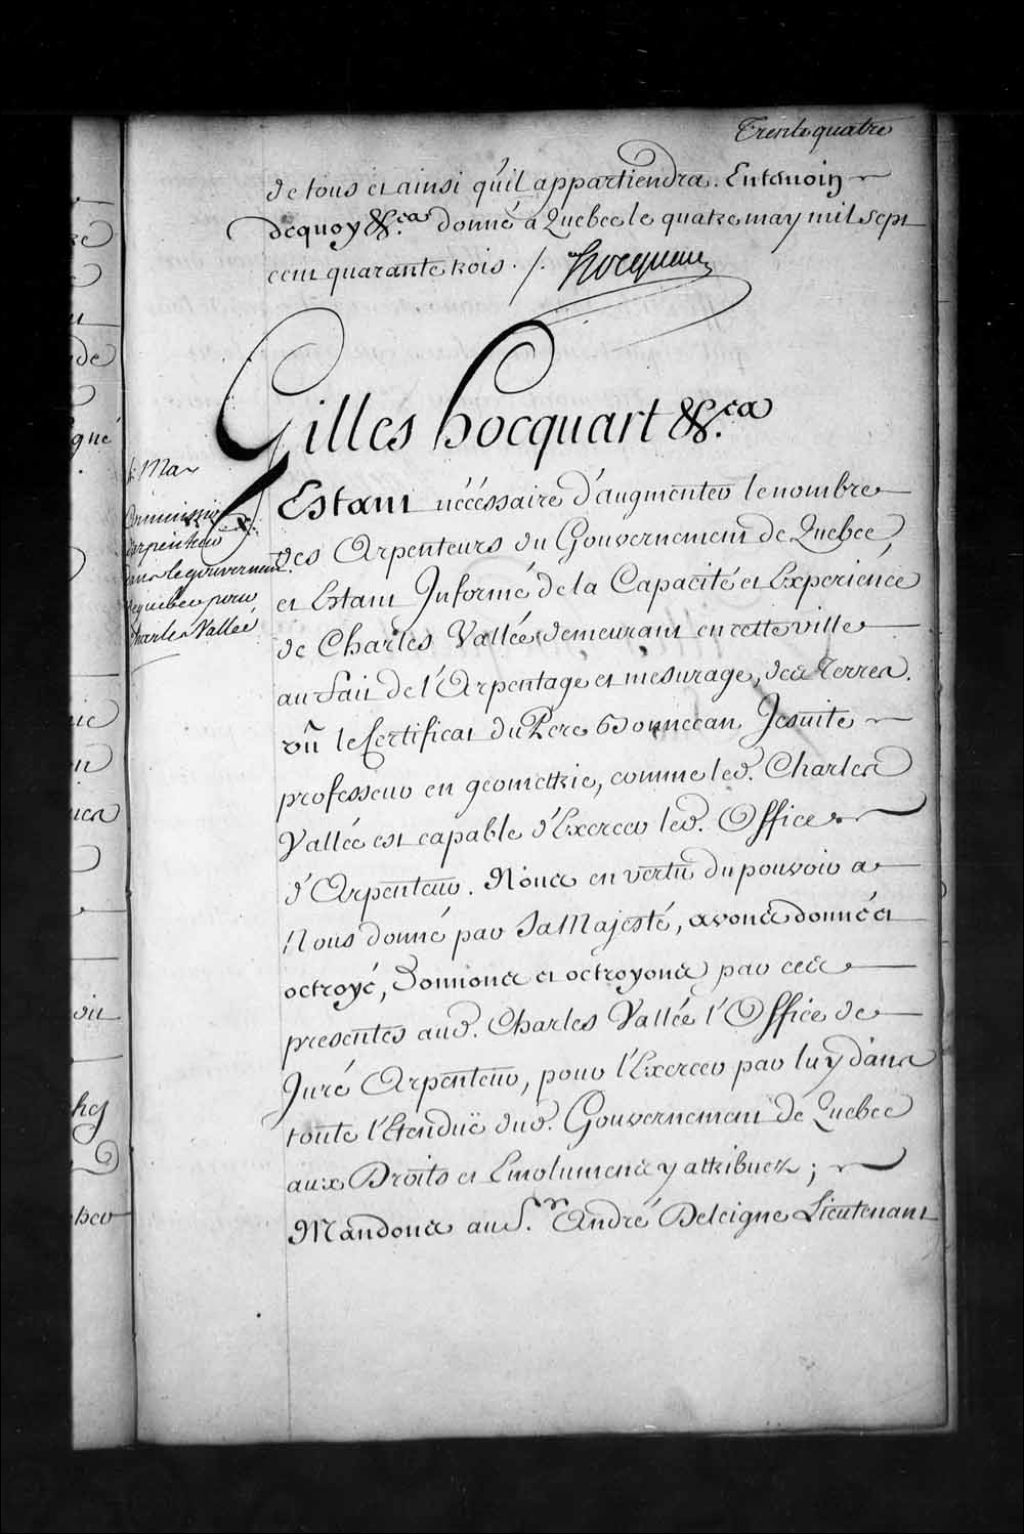 Trente quatre
de tous et ainsi qu'il appartiendra. En temoin
de quoy &.ca donné a Quebec le quatre may mil sept
cent quarante trois ./. Hocquart
Gilles hocquart &.ca
4 Mai
Commission
d'arpenteur
dans le gouvernement
de quebec pour
Charles Vallée
Estant nécéssaire d'augmenter le nombre
des Arpenteurs du Gouvernement de Quebec,
et Estant Informé de la Capacité et Experience
de Charles Vallée demeurant en cette ville
au fait de l'Arpentage et mesurage, des Terres.
vû le Certificat du Pere Bonnecan Jesuite
professeur en geometrie, comme led. Charles
Vallée est capable d'Exercer led. Office
d'Arpenteur. Nous en vertu du pouvoir a
Nous donné par Sa Majesté, avons donné et
octroyé, Donnons et octroyons par ces
presentes aud. Charles Vallée l'Office de
Juré Arpenteur, pour l'Exercer par luy dans
toute l'Etenduë dud. Gouvernement de Quebec
aux Droits et Emolumens y attribuez ;
Mandons au S.r André Deleigne Lieutenant